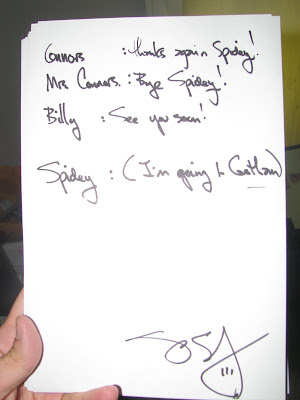 Connors : Thanks again Spidey!
Mrs. Connors : Bye Spidey!
Billy : See you soon!
Spidey : (I'm going to Gotham)